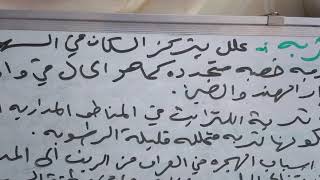 تربه ؛ علل يتركز السكان في السهـ
ـربه خصبه متجدده كما هو الحال في واد
ـار الهند والصين.
تربة اللترايت في المناطق المداريه
كونها تربه متملله قليلة الرسوبه.
اسباب الهجره في العراق من الريف الى المد